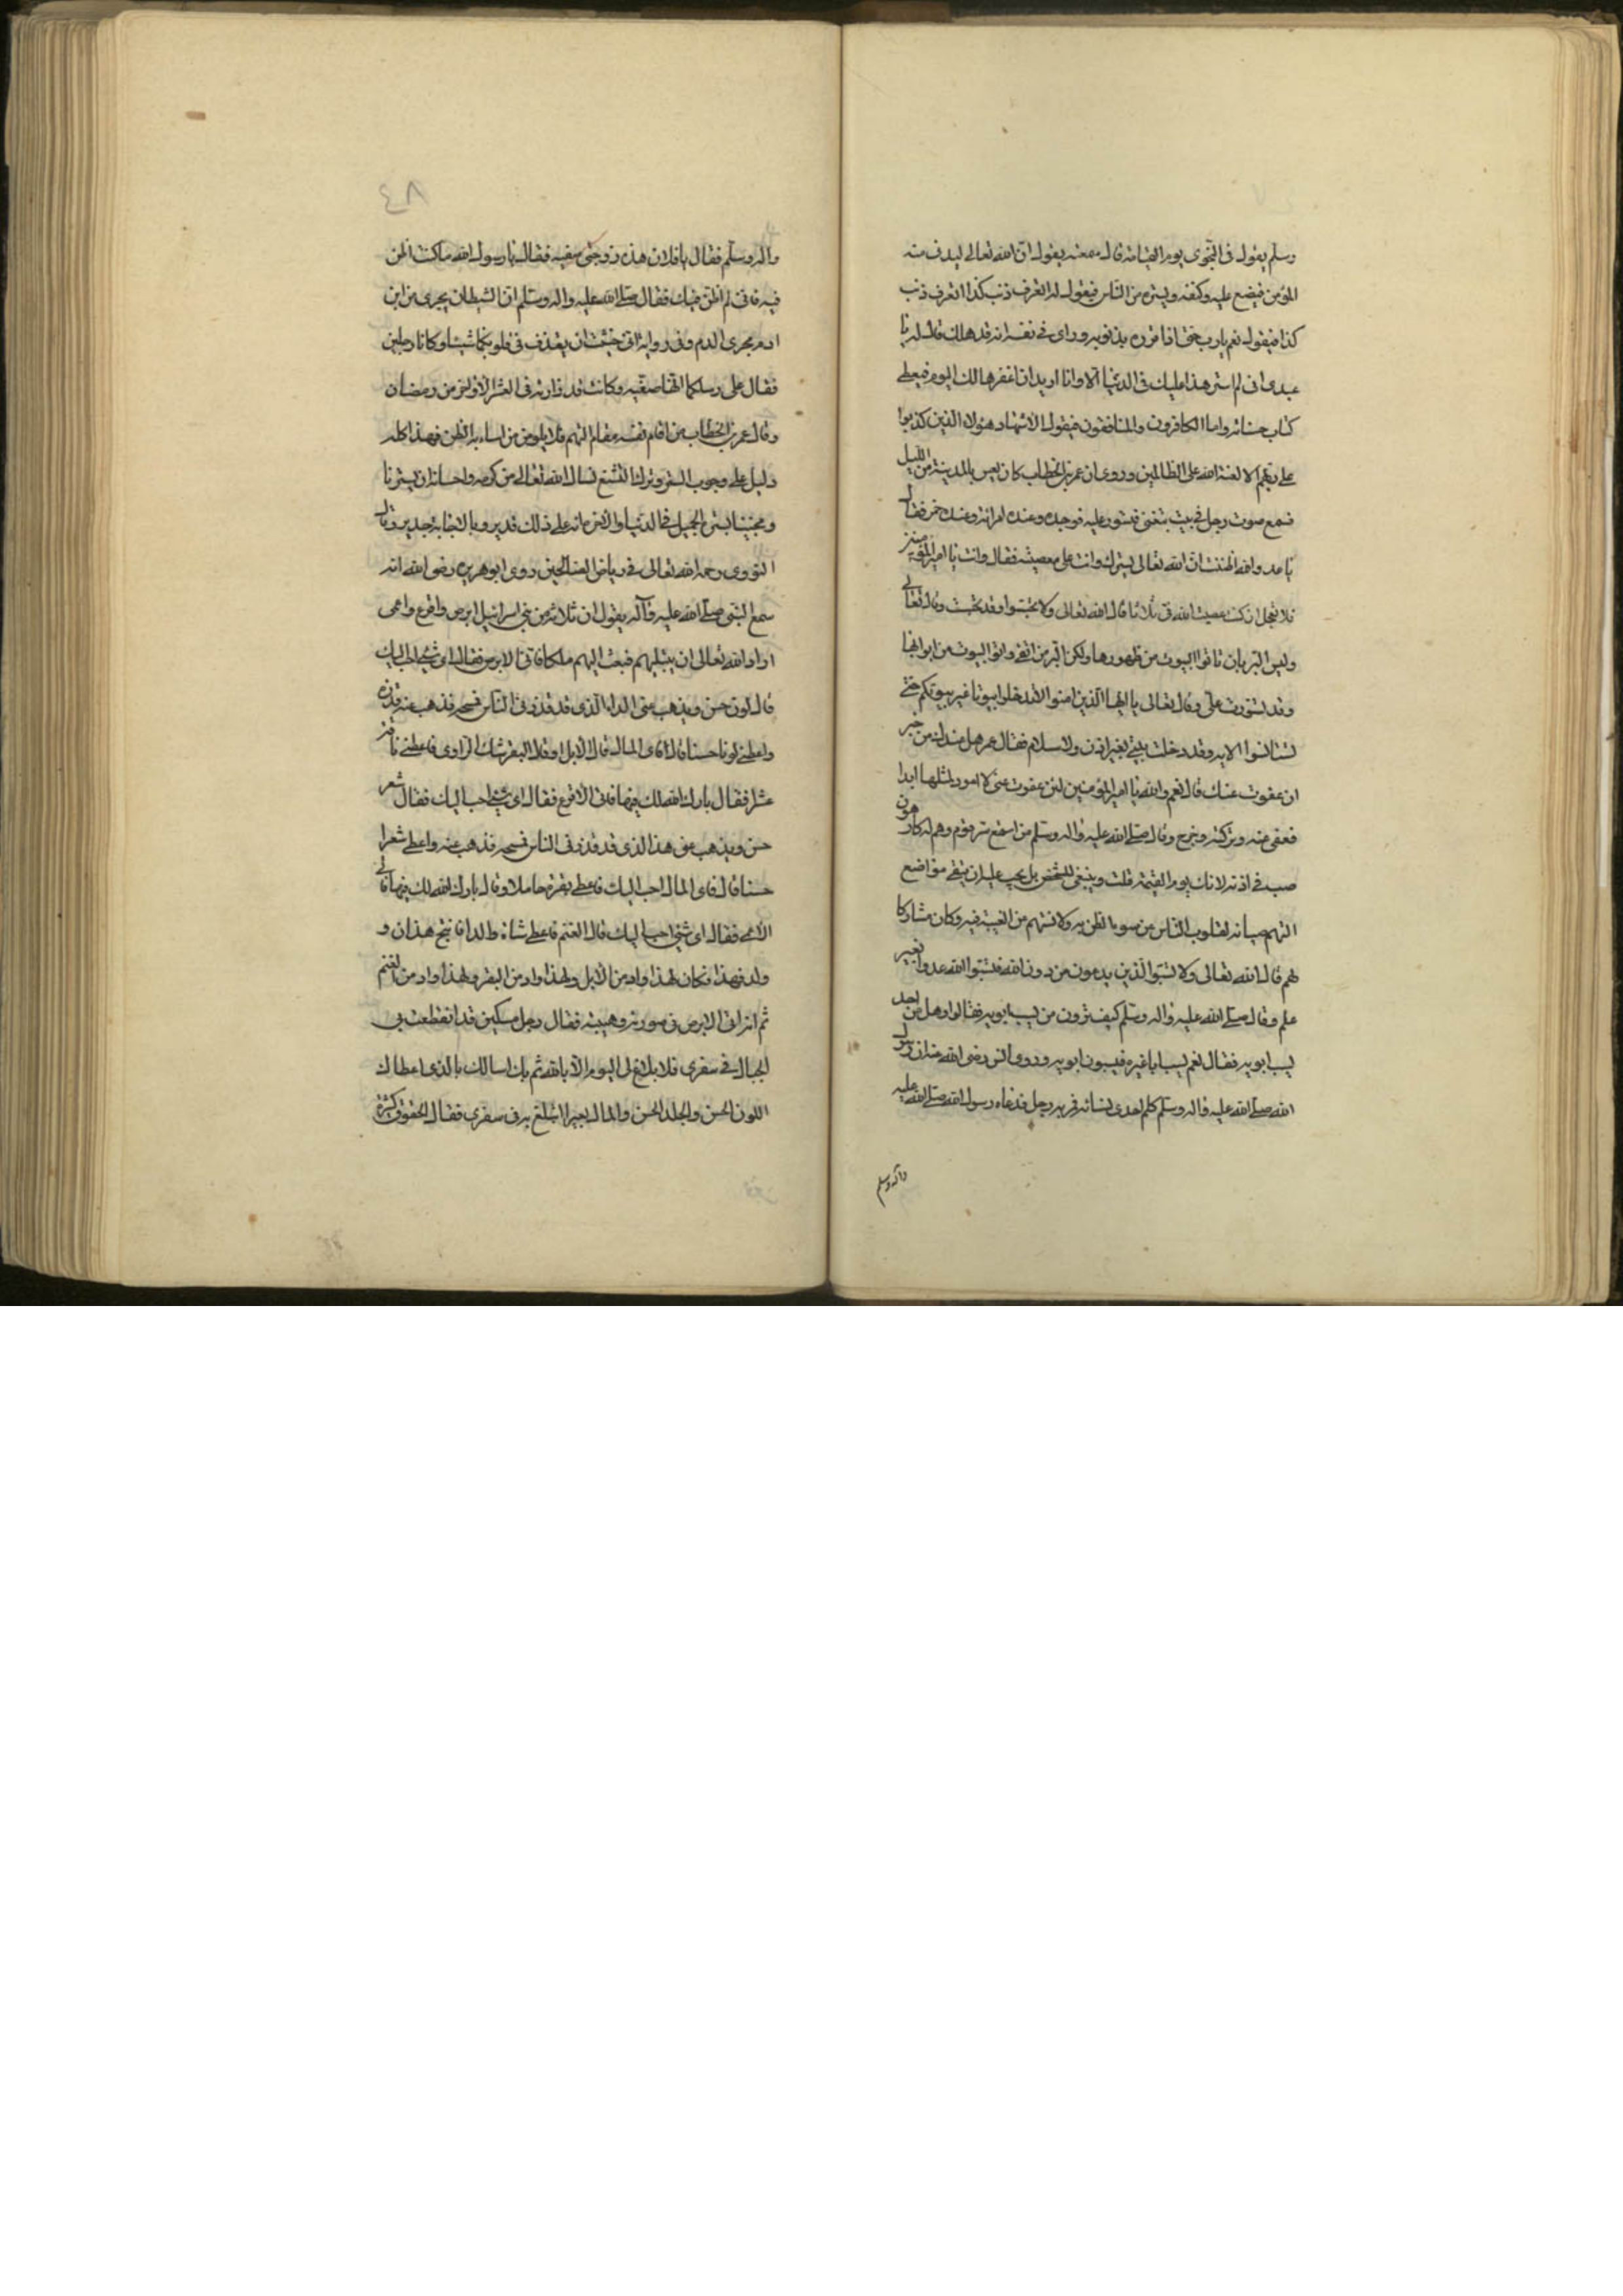 وسلم يقول في النجوى يوم القيامة قال سمعته يقول ان الله تعالى ليدني منه
المؤمن فيضع عليه كنفه ويستره من الناس فيقول له اتعرف ذنب كذا اتعرف ذنب
كذا فيقول نعم يا رب حتى اذا قرره بذنوبه وراى في نفسه انه قد هلك قال له يا
عبدي اني لم استر هذا عليك في الدنيا الا وانا اريد ان اغفرها لك اليوم فيعطى
كتاب حسناته واما الكافرون والمنافقون فيقول الاشهاد هؤلاء الذين كذبوا
على ربهم الا لعنة الله على الظالمين وروى ان عمر بن الخطاب كان يعس بالمدينة من الليل
فسمع صوت رجل في بيت يتغنى فتسور عليه فوجده وعنده امراة وعنده خمر فقال
يا عدو الله اظننت ان الله تعالى يسترك وانت على معصيته فقال وانت يا امير المؤمنين
فلا تعجل ان كنت عصيت الله في ثلاثا قال الله تعالى ولا تجسسوا وقد تجسست وقال تعالى
وليس البر بان تاتوا البيوت من ظهورها ولكن البر من اتقى واتوا البيوت من ابوابها
وقد تسورت علي وقال تعالى يا ايها الذين امنوا لا تدخلوا بيوتا غير بيوتكم حتى
تستانسوا الاية وقد دخلت بيتي بغير اذن ولا سلام فقال عمر هل عندك من خير
ان عفوت عنك قال نعم والله يا امير المؤمنين لئن عفوت عني لا اعود لمثلها ابدا
فعفى عنه وتركه وخرج وقال صلى الله عليه واله وسلم من استمع سر قوم وهم له كارهون
صب في اذنه الانك يوم القيمة قلت وينبغي للشخص بل يجب عليه ان يتقي مواضع
التهم صيانة لقلوب الناس من سوء الظن به ولالسنتهم من الغيبة فيه وكان مشاركا
لهم قال الله تعالى ولا تسبوا الذين يدعون من دون الله فيسبوا الله عدوا بغير
علم وقال صلى الله عليه واله وسلم كيف ترون من يسب ابويه فقالوا وهل من احد
يسب ابويه فقال نعم يسب ابا غيره فيسبون ابويه وروى انس رضى الله عنه ان رسول
الله صلى الله عليه واله وسلم كلم احدى نسائه فمر به رجل فدعاه رسول الله صلى الله عليه
واله وسلم
٤٨
واله وسلم فقال يا فلان هذه زوجتي صفيه فقال يا رسول الله ما كنت اظن
فيه فاني لم اظن فيك فقال صلى الله عليه واله وسلم ان الشيطان يجري من ابن
ادم مجرى الدم وفي رواية اني خشيت ان يقذف في قلوبكما شيئا وكانا رجلين
فقال على رسلكما انها صفيه وكانت قد زارته في العشر الاواخر من رمضان
وقال عمر بن الخطاب من اقام نفسه مقام التهم فلا يلومن من اساء به الظن فهذا كله
دليل على وجوب الستر وترك التتبع نسال الله تعالى من كرمه واحسانه ان يسترنا
ومحبينا بستره الجميل في الدنيا والاخرة انه على ذلك قدير وبالاجابة جدير وقال
النووي رحمه الله تعالى في رياض الصالحين روى ابو هريرة رضى الله انه
سمع النبي صلى الله عليه وآله يقول ان ثلاثة من بني اسرائيل ابرص واقرع واعمى
اراد الله تعالى ان يبتليهم فبعث اليهم ملكا فاتى الابرص فقال اي شئ احب اليك
قال لون حسن ويذهب عني الداء الذي قد قذرني الناس فمسحه فذهب عنه قذره
واعطي لونا حسنا قال فاي المال قال الابل او قال البقر شك الراوي فاعطي ناقة
عشرا فقال بارك الله لك فيها فاتى الاقرع فقال اي شئ احب اليك فقال شعر
حسن ويذهب عني هذا الذي قد قذرني الناس فمسحه فذهب عنه واعطي شعرا
حسنا قال فاي المال احب اليك فاعطي بقرة حاملا وقال بارك الله لك فيها فاتى
الاعمى فقال اي شئ احب اليك قال الغنم فاعطي شاة والدا فانتج هذان و
ولد هذا فكان لهذا واد من الابل ولهذا واد من البقر ولهذا واد من الغنم
ثم انه اتى الابرص في صورته وهيئته فقال رجل مسكين قد انقطعت بي
الحبال في سفري فلا بلاغ لي اليوم الا بالله ثم بك اسالك بالذي اعطاك
اللون الحسن والجلد الحسن والمال بعيرا اتبلغ به في سفري فقال الحقوق كثيرة